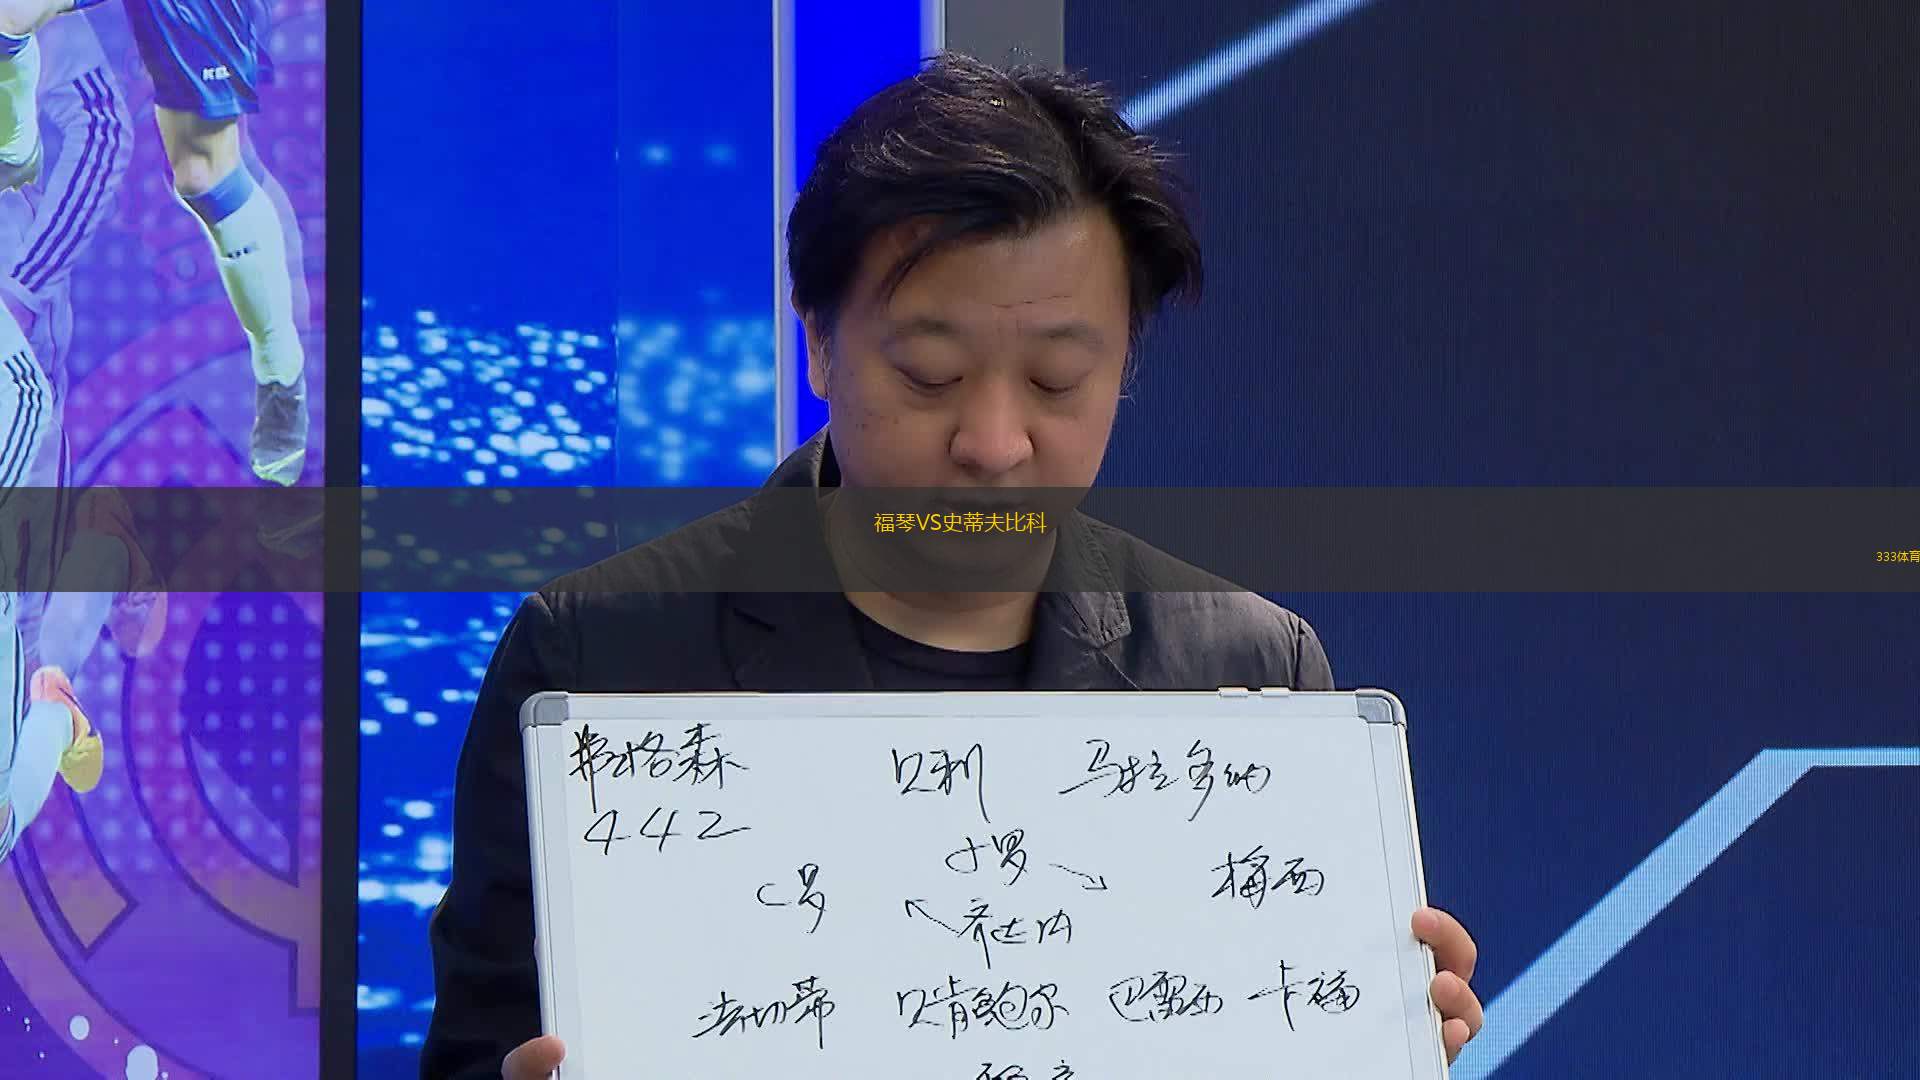 KEL
福琴VS史蒂夫比科
333体育
弗格森 贝利 马拉多纳
442
小罗
C罗 梅西
齐达内
法切蒂 贝肯鲍尔 巴雷西 卡福